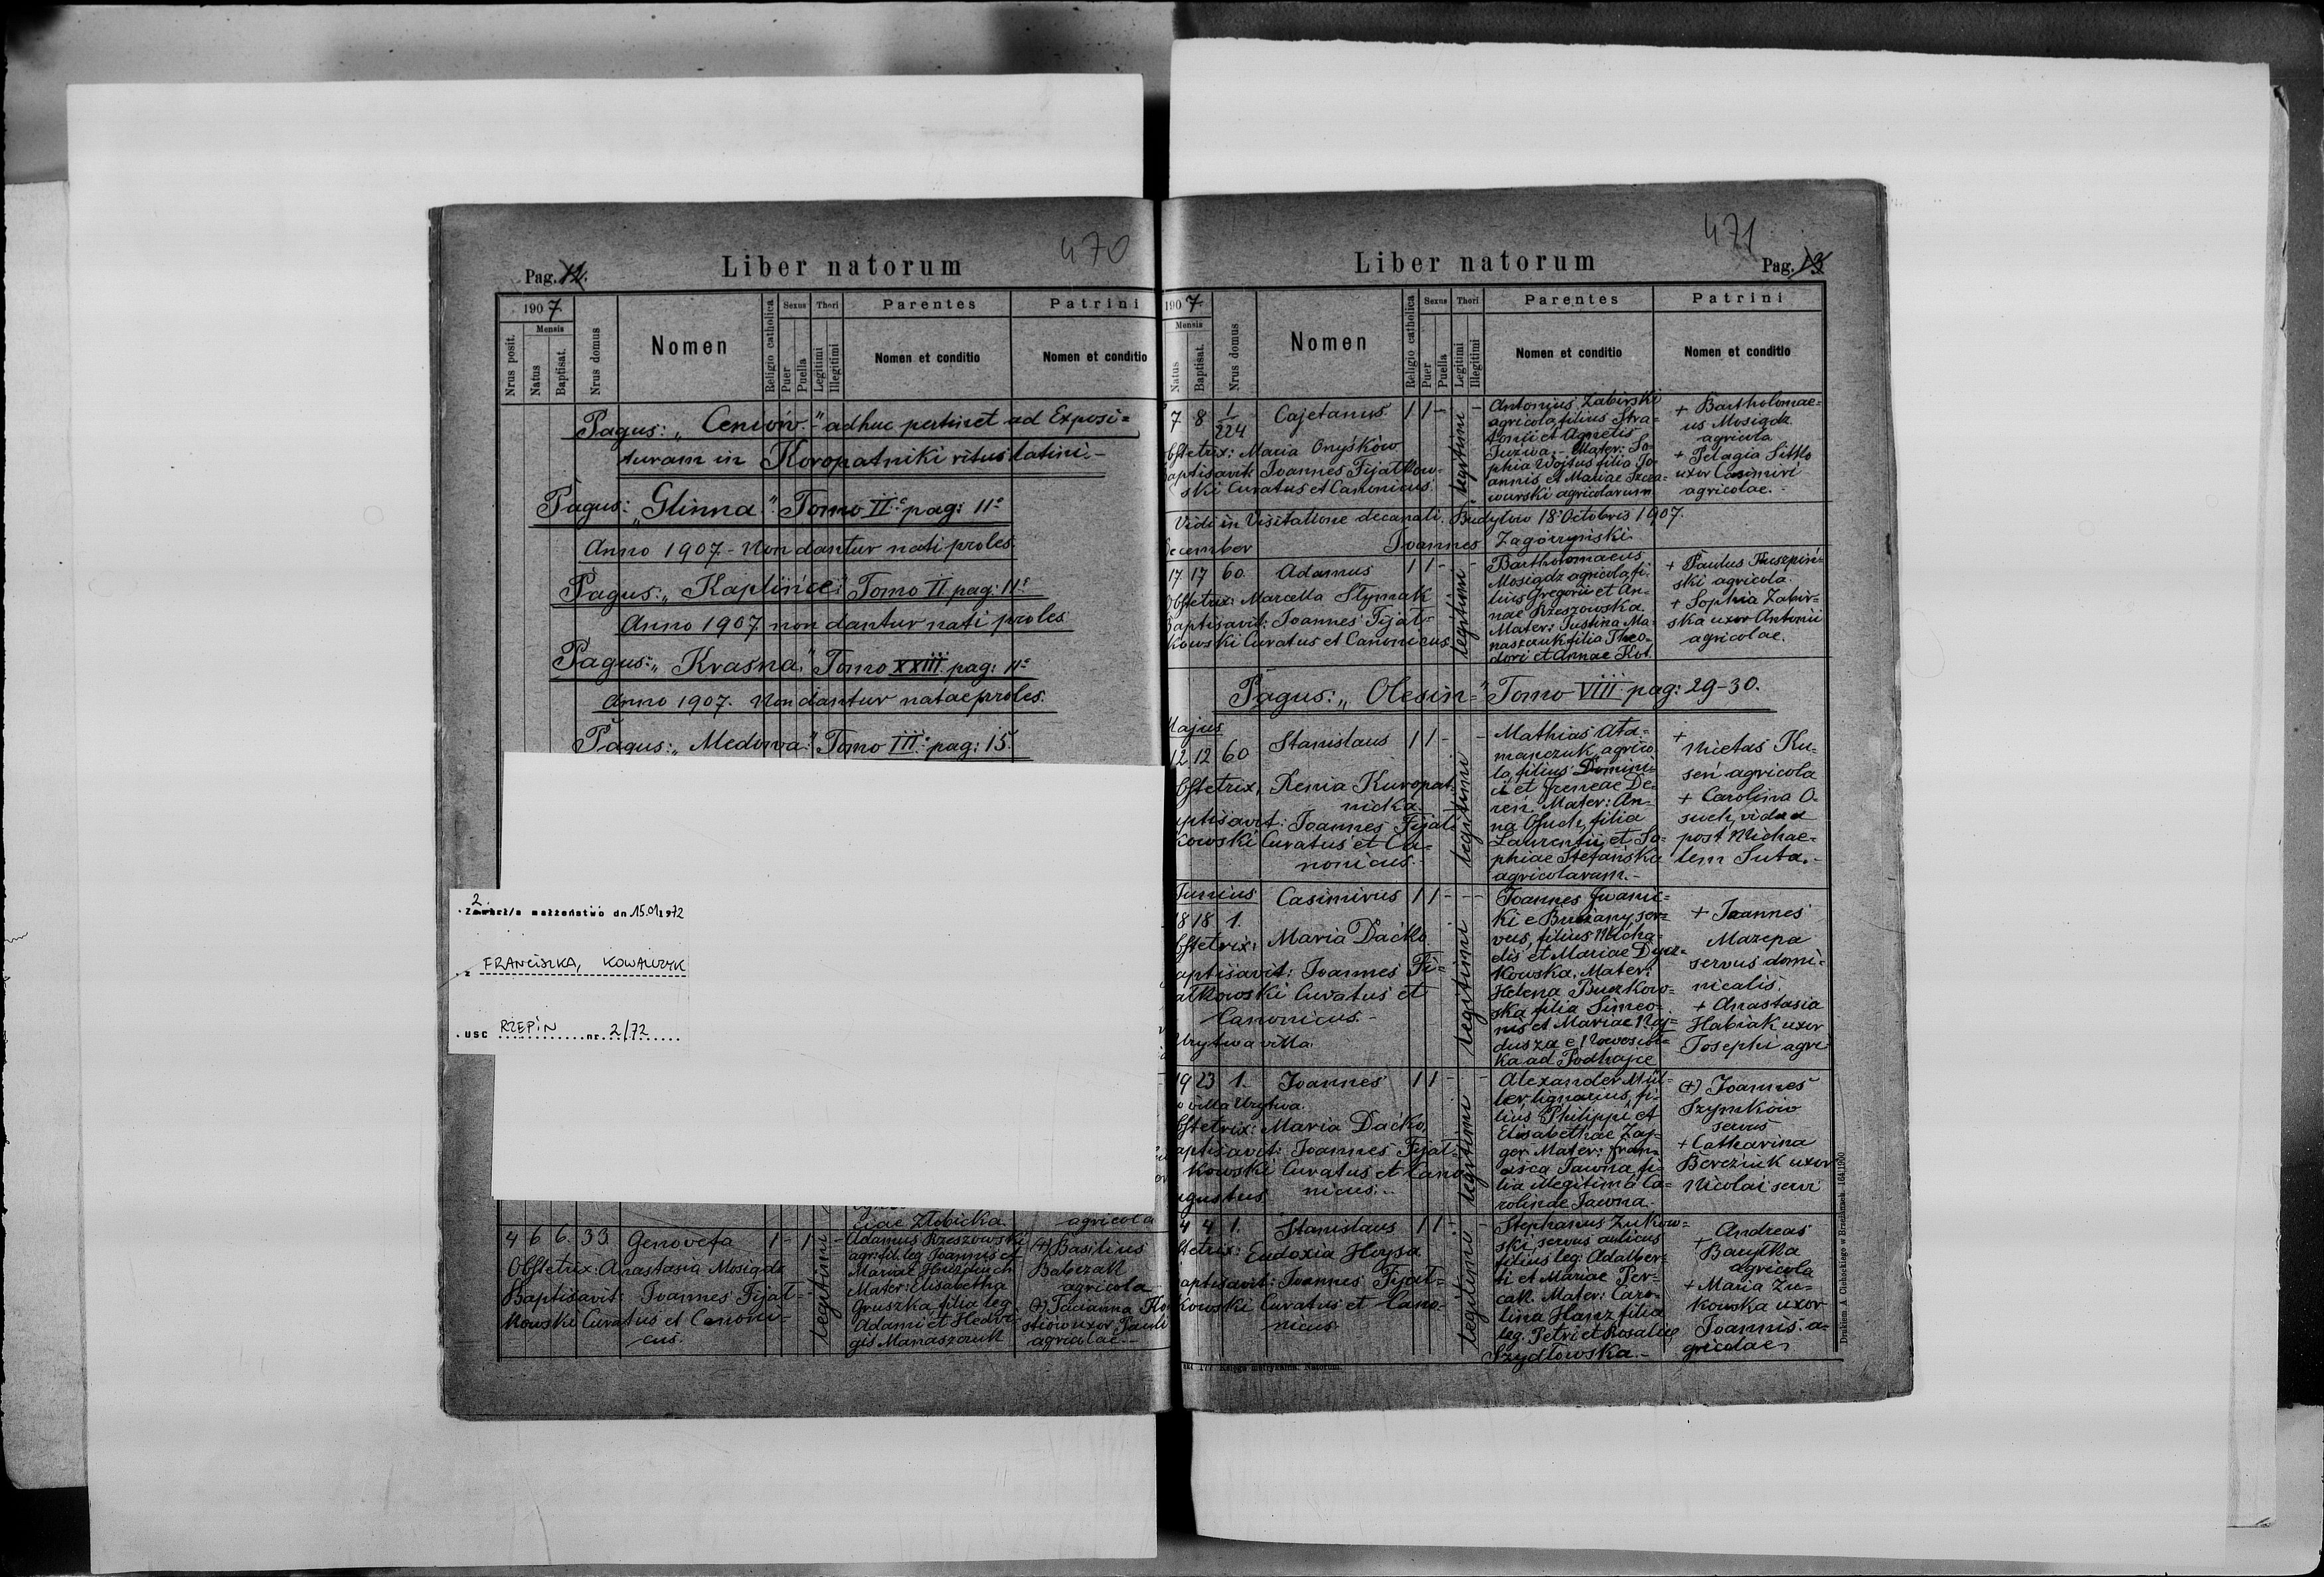 470
Pag. 12.
Liber natorum
1907
Nrus posit.
Mensis
Natus
Baptisat.
Nrus domus
Nomen
Religio catholica
Sexus
Puer
Puella
Thori
Legitimi
Illegitimi
Parentes
Nomen et conditio
Patrini
Nomen et conditio
Pagus: „Ceniów" adhuc pertinet ad Exposi=
turam in Koropatniki ritus latini-
Pagus: „Glinna". Tomo II° pag: 11°
Anno 1907 - Non dantur nati proles.
Pagus: „Kaplińce" Tomo II pag: 11°
Anno 1907. non dantur nati proles
Pagus: „Krasna" Tomo XXIII pag: 11°
Anno 1907. Non dantur natae proles.
Pagus: „Medowa" Tomo III° pag: 15.
2.
Zawarł/a małżeństwo dn 15.01.1972
z FRANCISZKA, KOWALCZYK
usc RZEPIN nr. 2/72
ciae Złobicka.
agricola
4 6 6. 33. Genovefa 1 - 1 legitimi -
Obstetrix: Anastasia Mosigdz
Baptisavit: Joannes Fijał-
kowski Curatus et Canoni-
cus.
Adamus Rzeszowski
agr. fil. leg. Joannis et
Mariae
Mater: Elisabetha
Gruszka filia leg.
Adami et Hedvi-
gis Manaszczuk
(+) Basilius
Babczak
agricola
(+) Tacianna Ko
stiów uxor Pauli
agricolae.-
471
Liber natorum
Pag. 13
1907
Mensis
Natus
Baptisat.
Nrus domus
Nomen
Religio catholica
Sexus
Puer
Puella
Thori
Legitimi
Illegitimi
Parentes
Nomen et conditio
Patrini
Nomen et conditio
7 8 1/224 Cajetanus 1 1 - legitimi -
bstetrix: Maria Onyśków
aptisavit: Joannes Fijałkow-
ski Curatus et Canonicus.
Antonius Zabirski
agricola, filius Stra-
tonii et Agnetis
Juzwa.- Mater: So-
phia Wojtus filia Jo-
annis et Mariae Szcza-
wurski agricolarum
+ Bartholomae=
us Mosigdz
agricola
+ Pelagia Sitko
uxor Casimiri
agricolae.-
Vidi in Visitatione decanali. Budyłów 18 Octobris 1907.
Joannes Zagórzyński
December
17 17 60. Adamus 1 1 - legitimi -
Obstetrix: Marcella Slymak
Baptisavit: Joannes Fijał-
kowski Curatus et Canonicus.
Bartholomaeus
Mosigdz agricola fi-
lius Gregorii et An-
nae Rzeszowska
Mater: Justina Ma-
naszczuk filia Theo-
dori et Annae Kot.
+ Paulus
ski agricola.
+ Sophia Zabir-
ska uxor Antonii
agricolae.
Pagus: „Olesin" Tomo VIII pag: 29-30.
Majus
12 12 60 Stanislaus 1 1 - legitimi -
bstetrix, Xenia Kuropat-
nicka.
aptisavit: Joannes Fijał-
kowski Curatus et Ca-
nonicus.-
Mathias Ata-
mańczuk agrico-
la, filius Domini-
ci et Ireneae De-
reń. Mater: An-
na Osuch, filia
Laurentii et So-
phiae Stefańska
agricolarum.-
+
Nicetas Ku-
seń agricola
+ Carolina O-
such, vidua
post Michae-
lem Suta.-
Junius Casimirus 1 1 - legitimi -
18 18 1.
bstetrix: Maria Daćko
aptisavit: Joannes Fi=
ałkowski Curatus et
Canonicus.-
Urytwa villa.
Joannes Iwanic-
ki e Buszany, ser-
vus, filius Micha-
elis et Mariae Dycz-
kowska. Mater:
Helena Buczkow-
ska filia Simeo-
nis et Mariae Haj-
dusza e Nowosioł-
ka ad Podhajce
+ Joannes
Mazepa
servus domi-
nicalis.
+ Anastasia
Habiak uxor
Josephi agri-
19 23 1. Joannes 1 1 - legitimi -
villa Urytwa.
bstetrix: Maria Daćko.
aptisavit: Joannes Fijał-
kowski Curatus et Cano-
nicus..
Alexander Mül-
ler lignarius, fi-
lius Philippi et
Elisabethae Zaj-
ger Mater: Fran-
cisca Jawna, fi-
lia illegitima Ca-
rolinae Jawna.
(+) Joannes
Szymków
servus
+ Catharina
Bereziuk uxor
Nicolai servi
ugustus
4 4 1. Stanislaus 1 1 - legitimi -
stetrix: Eudoxia Hrysa
aptisavit: Joannes Fijał=
kowski Curatus et Cano-
nicus.
Stephanus Żukow=
ski, servus aulicus
filius leg. Adalber-
ti et Mariae Per-
cak. Mater: Caro-
lina Hanz filia
leg. Petri et Rosaliae
Szydłowska.-
Andreas
+ Baryłka
agricola
+ Maria Żu-
kowska uxor
Joannis a-
gricolae
177 Księga metrykalna. Natorum.
Drukiem A Cichockiego w Brzeżanach. 164|1900